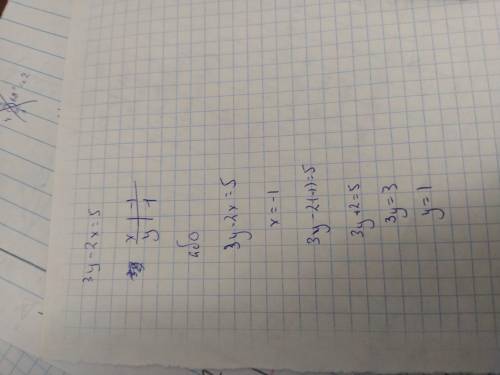 3y-2x=5
x | -1
y | 1
або
3y-2x=5
x=-1
3y-2(-1)=5
3y+2=5
3y=3
y=1